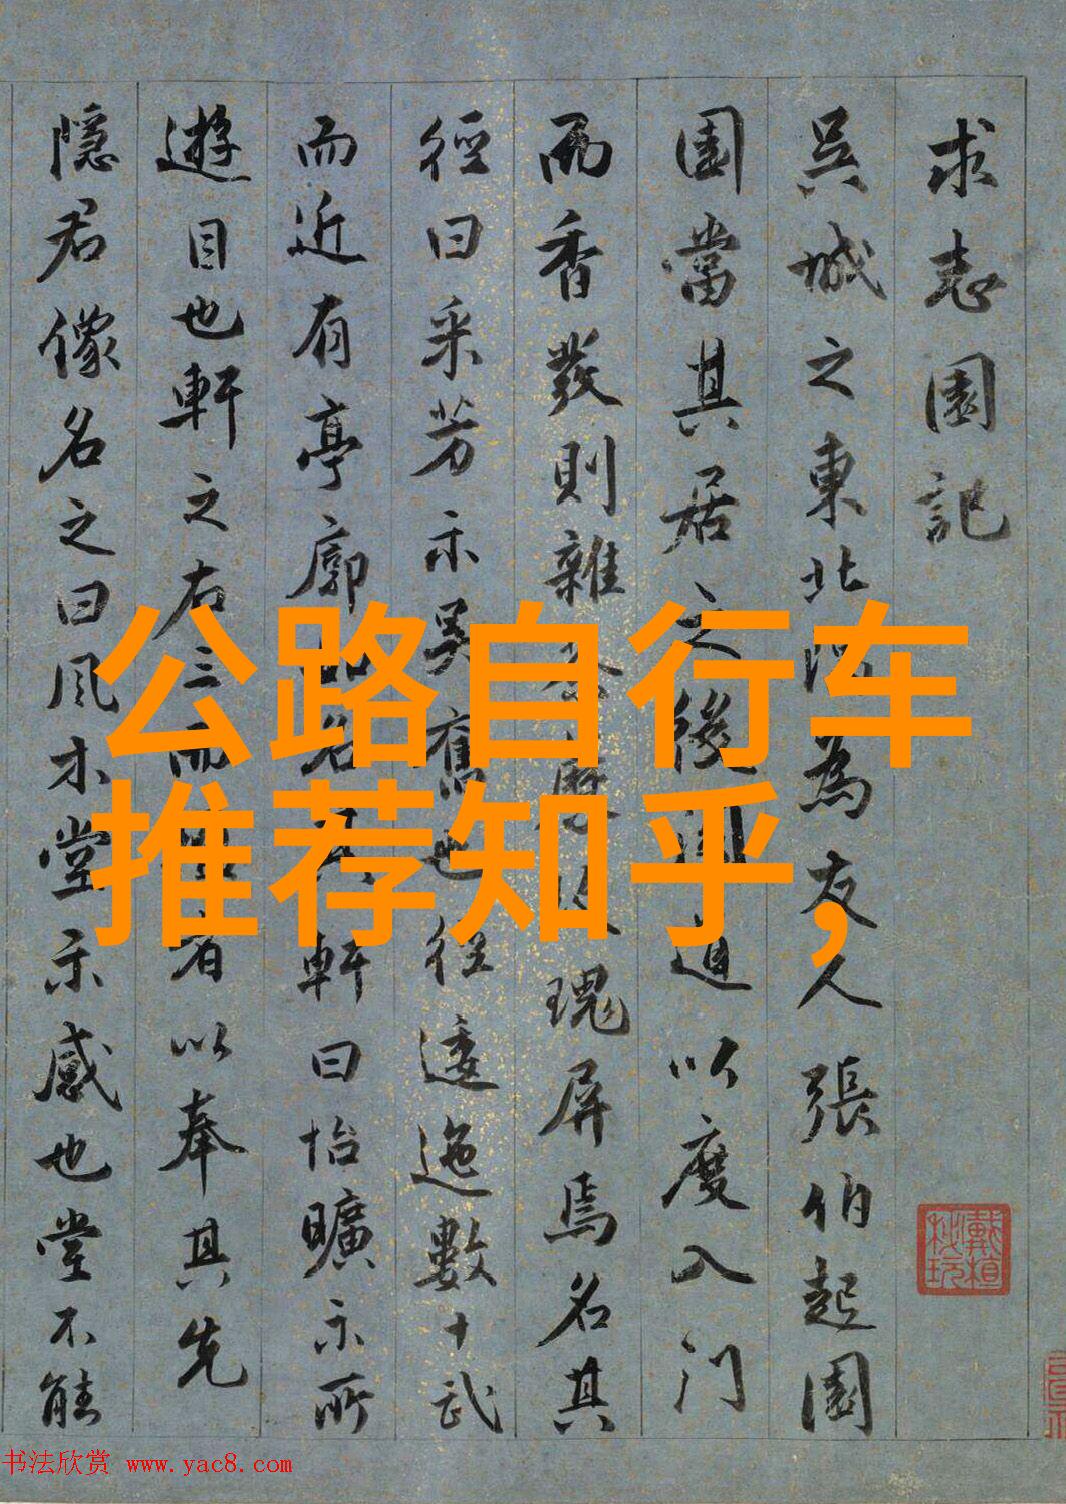 求志園記
吳城之東北為友人張伯起園
園當其居之後以度入門
而香發則雜瑰屏焉名其
徑曰采芳示吳舊也徑逶迤數十武
而近有亭廓如名其軒曰怡曠示所
遊目也軒之右三而者以奉其先
隱君像名之曰風木堂示感也堂不能
公路自行车
推荐知乎,
书法欣赏 www.yac8.com